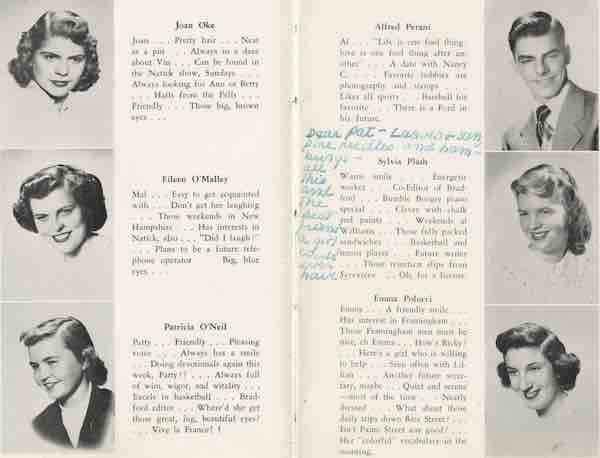 Joan Oke
Joan . . . Pretty hair . . . Neat
as a pin . . . Always in a daze
about Vin . . . Can be found in
the Natick show, Sundays . . .
Always looking for Ann or Betty
. . . Hails from the Fells . . .
Friendly . . . Those big, brown
eyes . . .
Eileen O'Malley
Mal . . . Easy to get acquainted
with . . . Don't get her laughing
. . . Those weekends in New
Hampshire . . . Has interests in
Natick, also . . . "Did I laugh!"
. . . Plans to be a future tele-
phone operator . . . Big, blue
eyes . . .
Patricia O'Neil
Patty . . . Friendly . . . Pleasing
voice . . . Always has a smile
. . . Doing devotionals again this
week, Patty? . . . Always full
of wim, wigor, and witality . . .
Excels in basketball . . . Brad-
ford editor . . . Where'd she get
those great, big, beautiful eyes?
. . . Vive la France! !
Alfred Perani
Al . . . "Life is one fool thing;
love is one fool thing after an-
other" . . . A date with Nancy
C. . . . Favorite hobbies are
photography and stamps . . .
Likes all sports . . . Baseball his
favorite . . . There is a Ford in
his future.
Dear Pat -
pine needles and ham-
burgs -
all
this
and
the
best
friend
a girl
could
ever
have
Sylvia Plath
Warm smile . . . Energetic
worker . . . Co-Editor of Brad-
ford . . . Bumble Boogie piano
special . . . Clever with chalk
and paints . . . Weekends at
Williams . . . Those fully packed
sandwiches . . . Basketball and
tennis player . . . Future writer
. . . Those rejection slips from
Seventeen . . . Oh, for a license.
Emma Polucci
Emmy . . . A friendly smile . . .
Has interest in Framingham . . .
Those Framingham men must be
nice, eh Emma . . . How's Ricky?
. . . Here's a girl who is willing
to help . . . Seen often with Lil-
lian . . . Another future secre-
tary, maybe . . . Quiet and serene
—most of the time . . . Neatly
dressed . . . What about those
daily trips down Street? . . .
Isn't Street any good? . . .
Her "colorful" vocabulary in the
morning.